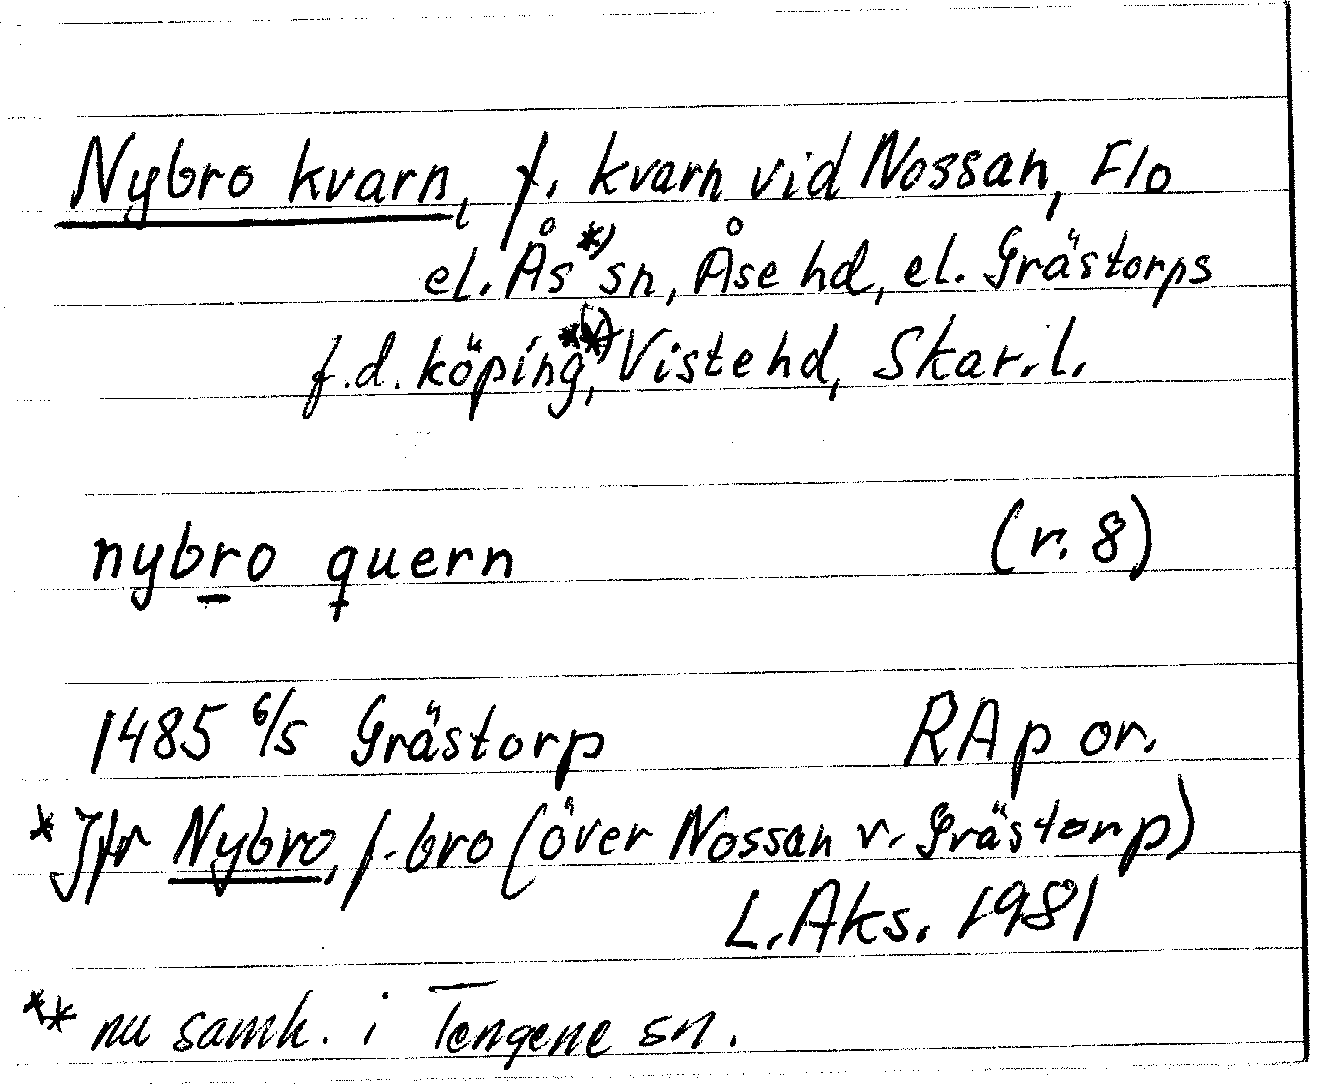 Nybro kvarn, f. kvarn vid Nossan, Flo
el. Ås*) sn, Åse hd, el. Grästorps
f.d. köping,**) Viste hd, Skar.l.
nybro quern (r. 8)
1485 6/5 Grästorp RAp or.
* Jfr Nybro, f. bro (över Nossan v. Grästorp)
L. Aks. 1981
** nu samh. i Tengene sn.